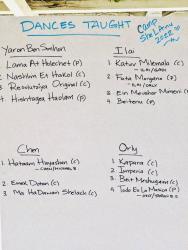 DANCES TAUGHT
CAMP
SHELANU
2022
Yaron Ben Simhon
1 Lama At Holechet (P)
2 Nashim Et Hakol (C)
3 Revolutzia Original (C)
4 Hashtagea Haolam (P)
Ilai
1 Katuv Milemala (C)
- ILAI / GADI
2 Fata Morgana (P)
- ILAI / GADI
3 Ein Makom (C)
4 Beitenu (P)
Chen
1 Hataam Hayashan (C)
2 Emek Dotan (C)
3 Ma HaDavar Shelach (C)
Orly
1 Kapara (C)
2 Imperia (C)
3 Beit Meshugaim (C)
4 Todo Es La Musica (P)